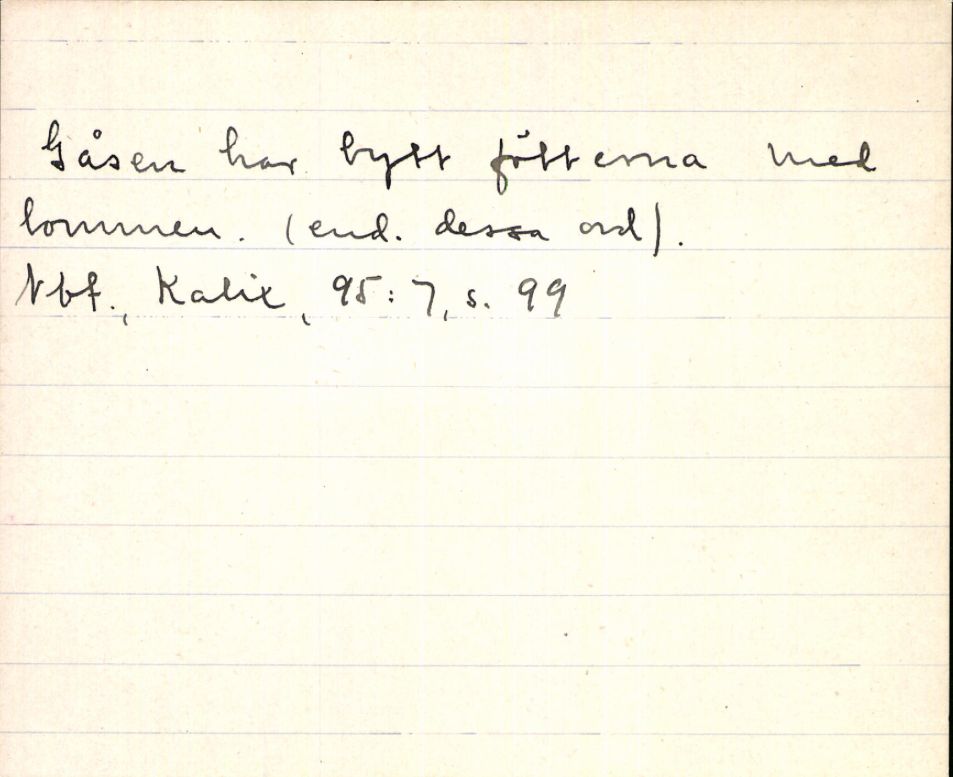 Gåsen har bytt fötterna med
lommen. (end. dessa ord).
Nbf., Kalix, 95:7, s. 99